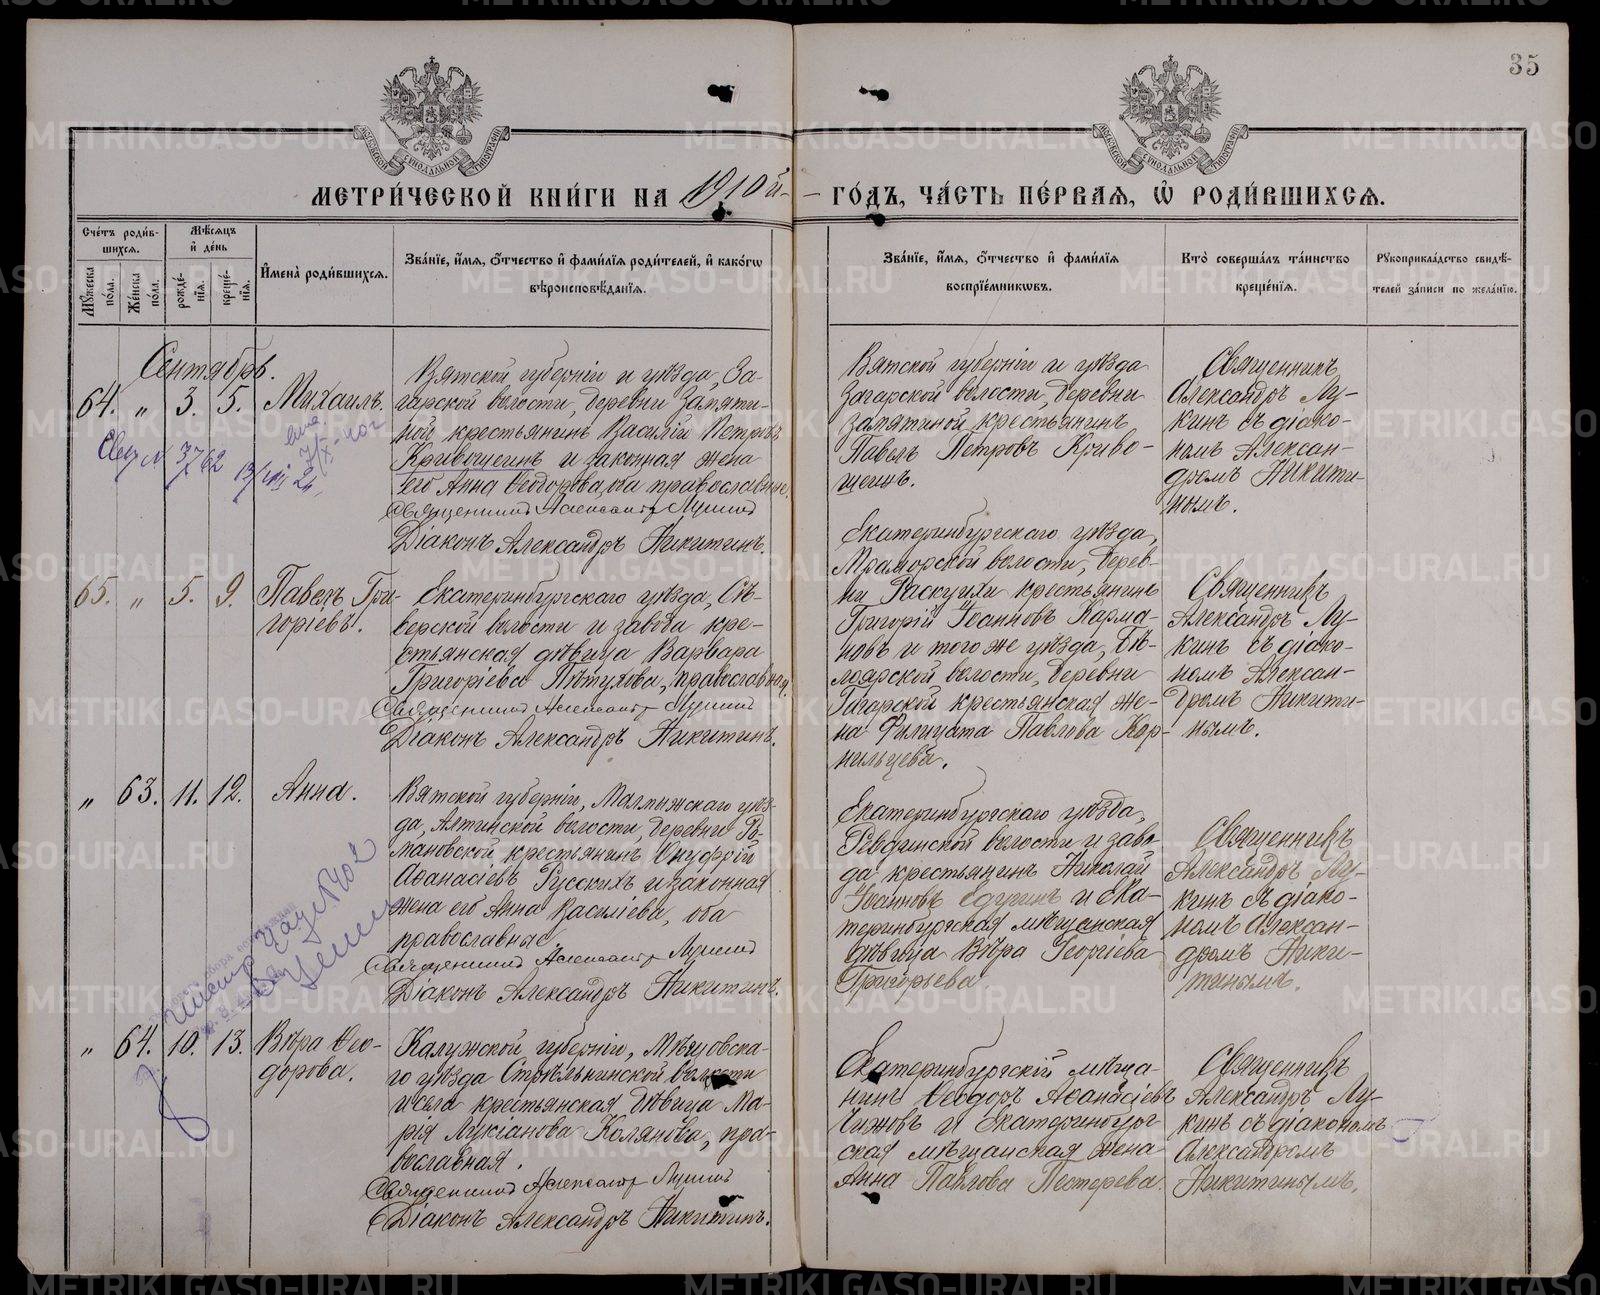 35
МОСКОВСКОЙ СѴНОДАЛЬНОЙ ТИПОГРАФІИ
МОСКОВСКОЙ СѴНОДАЛЬНОЙ ТИПОГРАФІИ
МЕТРИ́ЧЕСКОЙ КНИ́ГИ НА 1910й- ГО́ДЪ, ЧА́СТЬ ПЕ́РВАѦ, Ѡ҆ РОДИ́ВШИХСѦ.
Сче́тъ роди́в-
шихсѧ.
Мꙋ́жеска по́ла.
Же́нска по́ла.
Мѣ́сѧцъ
и҆ де́нь
рожде́-
нїѧ.
креще́-
нїѧ.
И҆мена̀ роди́вшихсѧ.
Зва́нїе, и҆́мѧ, ѻ҆́тчество и҆ фами́лїѧ роди́телей, и҆ како́гѡ
вѣроисповѣ́данїѧ.
Зва́нїе, и҆́мѧ, ѻ҆́тчество и҆ фами́лїѧ
воспрїе́мникѡвъ.
Кто̀ соверша́лъ та́инство
креще́нїѧ.
Рꙋкоприкла́дство свидѣ́-
телей за́писи по жела́нїю.
Сентябрь.
64. " 3. 5. Михаилъ.
Вятской губерніи и уѣзда, За-
гарской волости, деревни Замяти-
ной крестьянинъ Василій Петровъ
Кривощеинъ и законная жена
его Анна Ѳеодорова, оба православные.
Священникъ Александръ Лукинъ
Діаконъ Александръ Никитинъ.
Вятской губерніи и уѣзда
Загарской волости, деревни
Замятиной крестьянинъ
Павелъ Петровъ Криво-
щеинъ.
Священникъ
Александръ Лу-
кинъ съ діако-
номъ Алексан-
дромъ Никити-
нымъ.
65. " 5. 9. Павелъ Гри-
горіевъ.
Екатеринбургскаго уѣзда, Сѣ-
верской волости и завода кре-
стьянская дѣвица Варвара
Григоріева Пѣтухова, православная.
Священникъ Александръ Лукинъ
Діаконъ Александръ Никитинъ.
Екатеринбургскаго уѣзда,
Мраморской волости, дерев-
ни Раскуихи крестьянинъ
Григорій Іоанновъ Карма-
новъ и того же уѣзда, Бѣ-
лоярской волости, деревни
Гагарской крестьянская же-
на Филицата Павлова Кор-
нильцева.
Священникъ
Александръ Лу-
кинъ съ діако-
номъ Алексан-
дромъ Никити-
нымъ.
" 63. 11. 12. Анна.
Вятской губерніи, Малмыжскаго уѣз-
да, Алтинской волости, деревни Ро-
мановской крестьянинъ Онуфрій
Аѳанасіевъ Русскихъ и законная
жена его Анна Василіева, оба
православные.
Священникъ Александръ Лукинъ
Діаконъ Александръ Никитинъ.
Екатеринбургскаго уѣзда,
Ревдинской волости и заво-
да крестьянинъ Николай
Іоанновъ и Ека-
теринбургская мѣщанская
дѣвица Вѣра Георгіева
Григорьева.
Священникъ
Александръ Лу-
кинъ съ діако-
номъ Алексан-
дромъ Ники-
тинымъ.
" 64. 10. 13. Вѣра Ѳео-
дорова.
Калужской губерніи, Мѣщовска-
го уѣзда Стрѣльнинской волости
и села крестьянская дѣвица Ма-
рія Лукіанова Колянова, пра-
вославная.
Священникъ Александръ Лукинъ
Діаконъ Александръ Никитинъ.
Екатеринбургскій мѣща-
нинъ Ѳеодоръ Аѳанасіевъ
Чижовъ и Екатеринбург-
ская мѣщанская жена
Анна Павлова Пестерева.
Священникъ
Александръ Лу-
кинъ съ діакономъ
Александромъ
Никитинымъ.
METRIKI.GASO-URAL.RU